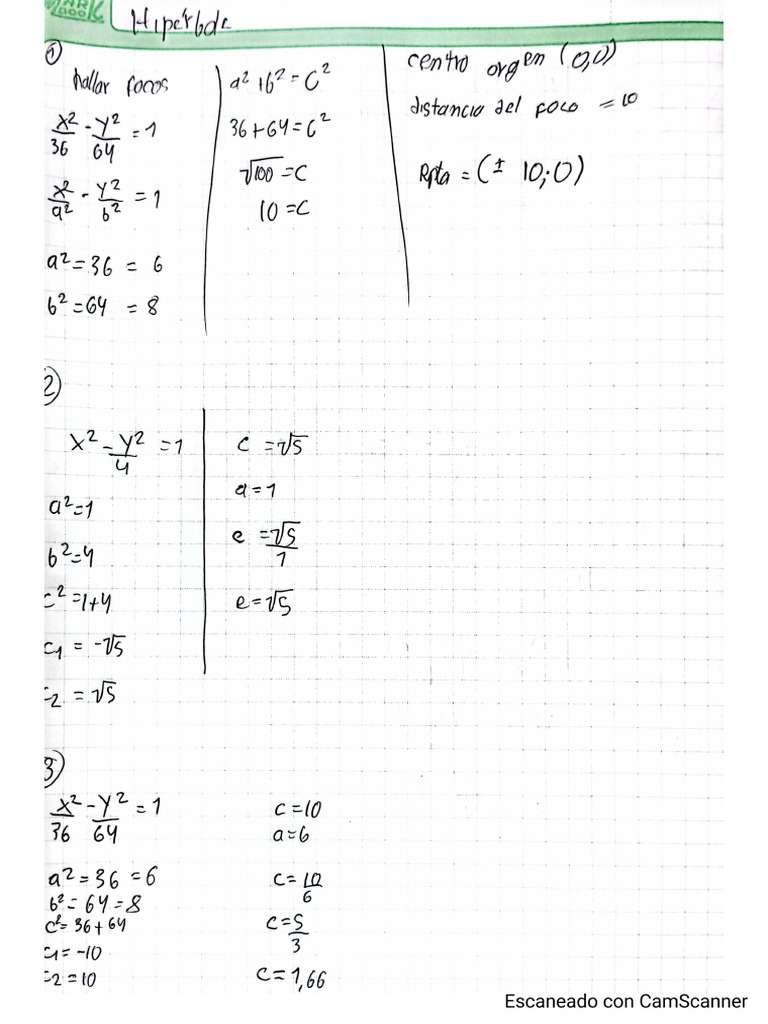 Hiperbola
1)
hallar focos
x²/36 - y²/64 = 1
x²/a² - y²/b² = 1
a² = 36 = 6
b² = 64 = 8
a² + b² = c²
36 + 64 = c²
√100 = c
10 = c
centro orgen (0,0)
distancia del foco = 10
Rpta = (± 10;0)
2)
x² - y²/4 = 1
a² = 1
b² = 4
c² = 1+4
c1 = -√5
c2 = √5
c = √5
a = 1
e = √5/1
e = √5
3)
x²/36 - y²/64 = 1
a² = 36 = 6
b² = 64 = 8
c² = 36 + 64
c1 = -10
c2 = 10
c = 10
a = 6
c = 10/6
c = 5/3
c = 1,66
Escaneado con CamScanner